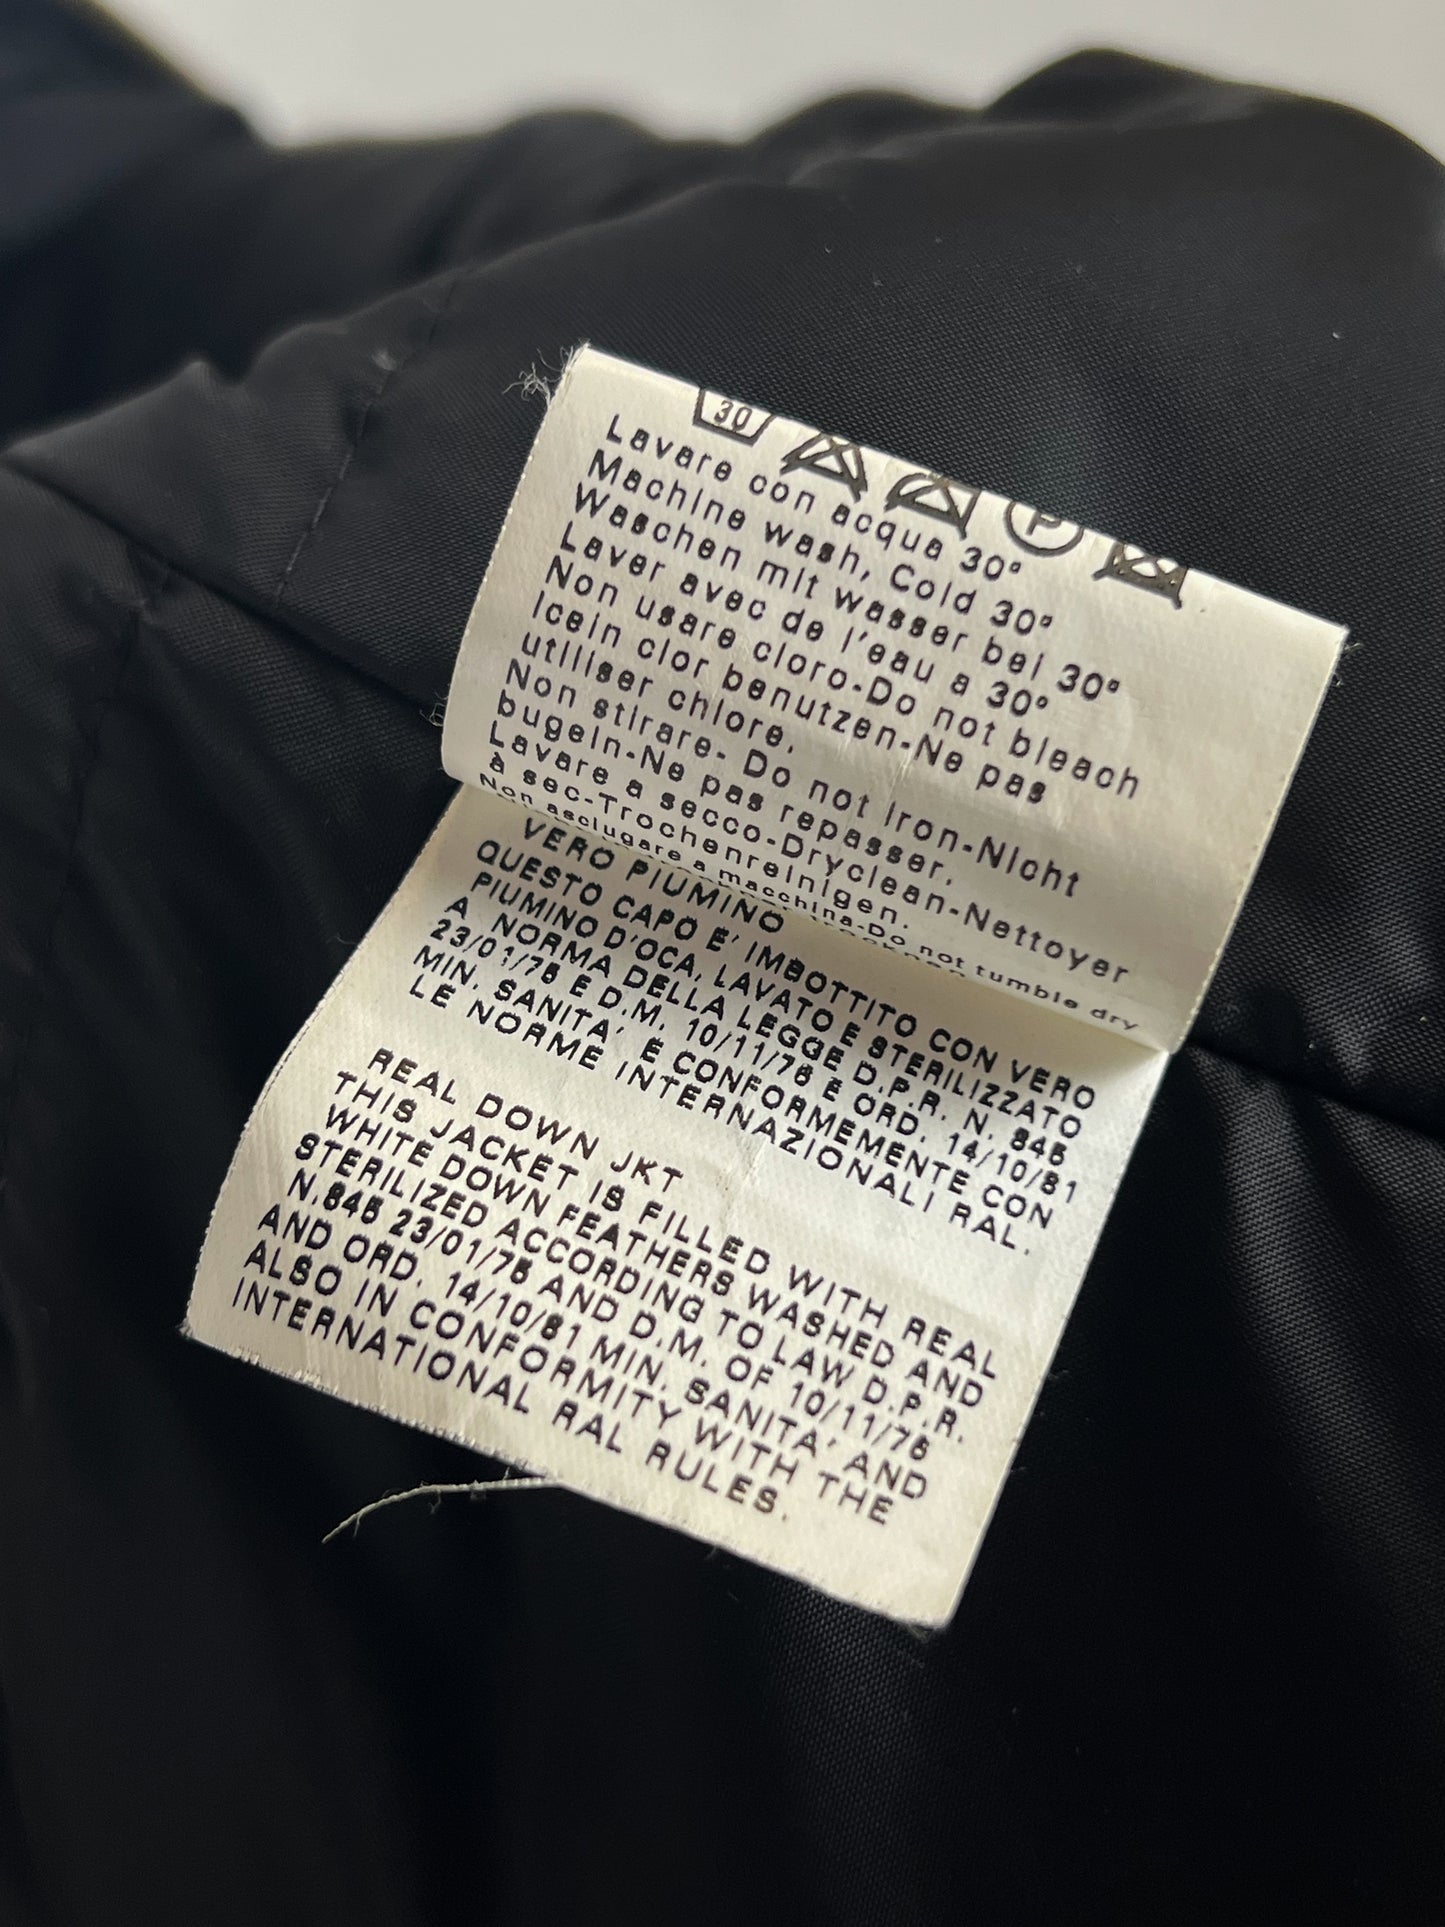 30
P
Lavare con acqua 30°
Machine wash, Cold 30°
Waschen mit wasser bei 30°
Laver avec de l'eau a 30°
Non usare cloro-Do not bleach
Icein clor benutzen-Ne pas
utiliser chlore.
Non stirare- Do not Iron-Nicht
bugeln-Ne pas repasser.
Lavare a secco-Dryclean-Nettoyer
à sec-Trochenreinigen.
Non asciugare a macchina-Do not tumble dry
VERO PIUMINO
QUESTO CAPO E' IMBOTTITO CON VERO
PIUMINO D'OCA, LAVATO E STERILIZZATO
A NORMA DELLA LEGGE D.P.R. N. 845
23/01/75 E D.M. 10/11/76 E ORD. 14/10/81
MIN. SANITA' E CONFORMEMENTE CON
LE NORME INTERNAZIONALI RAL.
REAL DOWN JKT
THIS JACKET IS FILLED WITH REAL
WHITE DOWN FEATHERS WASHED AND
STERILIZED ACCORDING TO LAW D.P.R.
N.845 23/01/75 AND D.M. OF 10/11/76
AND ORD. 14/10/81 MIN. SANITA' AND
ALSO IN CONFORMITY WITH THE
INTERNATIONAL RAL RULES.